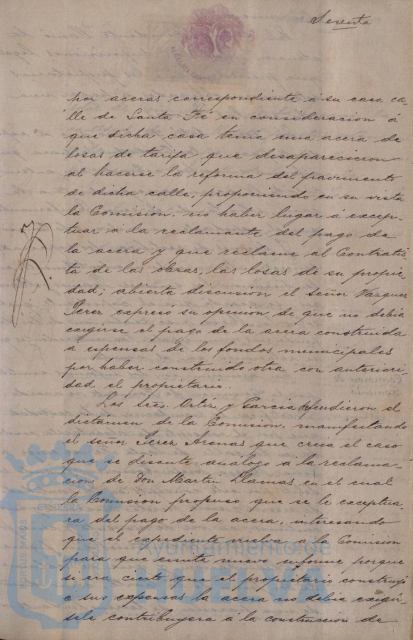 Sesenta
por aceras correspondiente á su casa ca
lle de Santa Fé en consideracion á
que dicha casa tenia una acera de
losas de tarifa que desaparecieron
al hacerse la reforma del pavimento
de dicha calle, proponiendo en su vista
la Comision, no haber lugar á excep-
tuar á la reclamante del pago de
la acera y que reclame al Contratis
ta de las obras, las losas de su propie
dad; abierta discusion el señor Vazquez
Perez expreso su opinion de que no debia
exigirse el pago de la acera construida
a expensas de los fondos municipales
por haber construido otra con anteriori
dad el propietario.
Los sres. Ortiz y Garcia defendieron el
dictámen de la Comision, manifestando
el señor Perez Arenas que creia el caso
que se discute análogo á la reclama-
cion de Don Martin Llamas en el cual
la Comision propuso que se le exceptua-
ra del pago de la acera, interesando
que el expediente vuelva á la Comision
para que emita nuevo informe porque
si era cierto que el propietario construyó
a sus expensas la acera no debia exigir
sele contribuyera á la construccion de
Ayuntamiento de
HUELVA